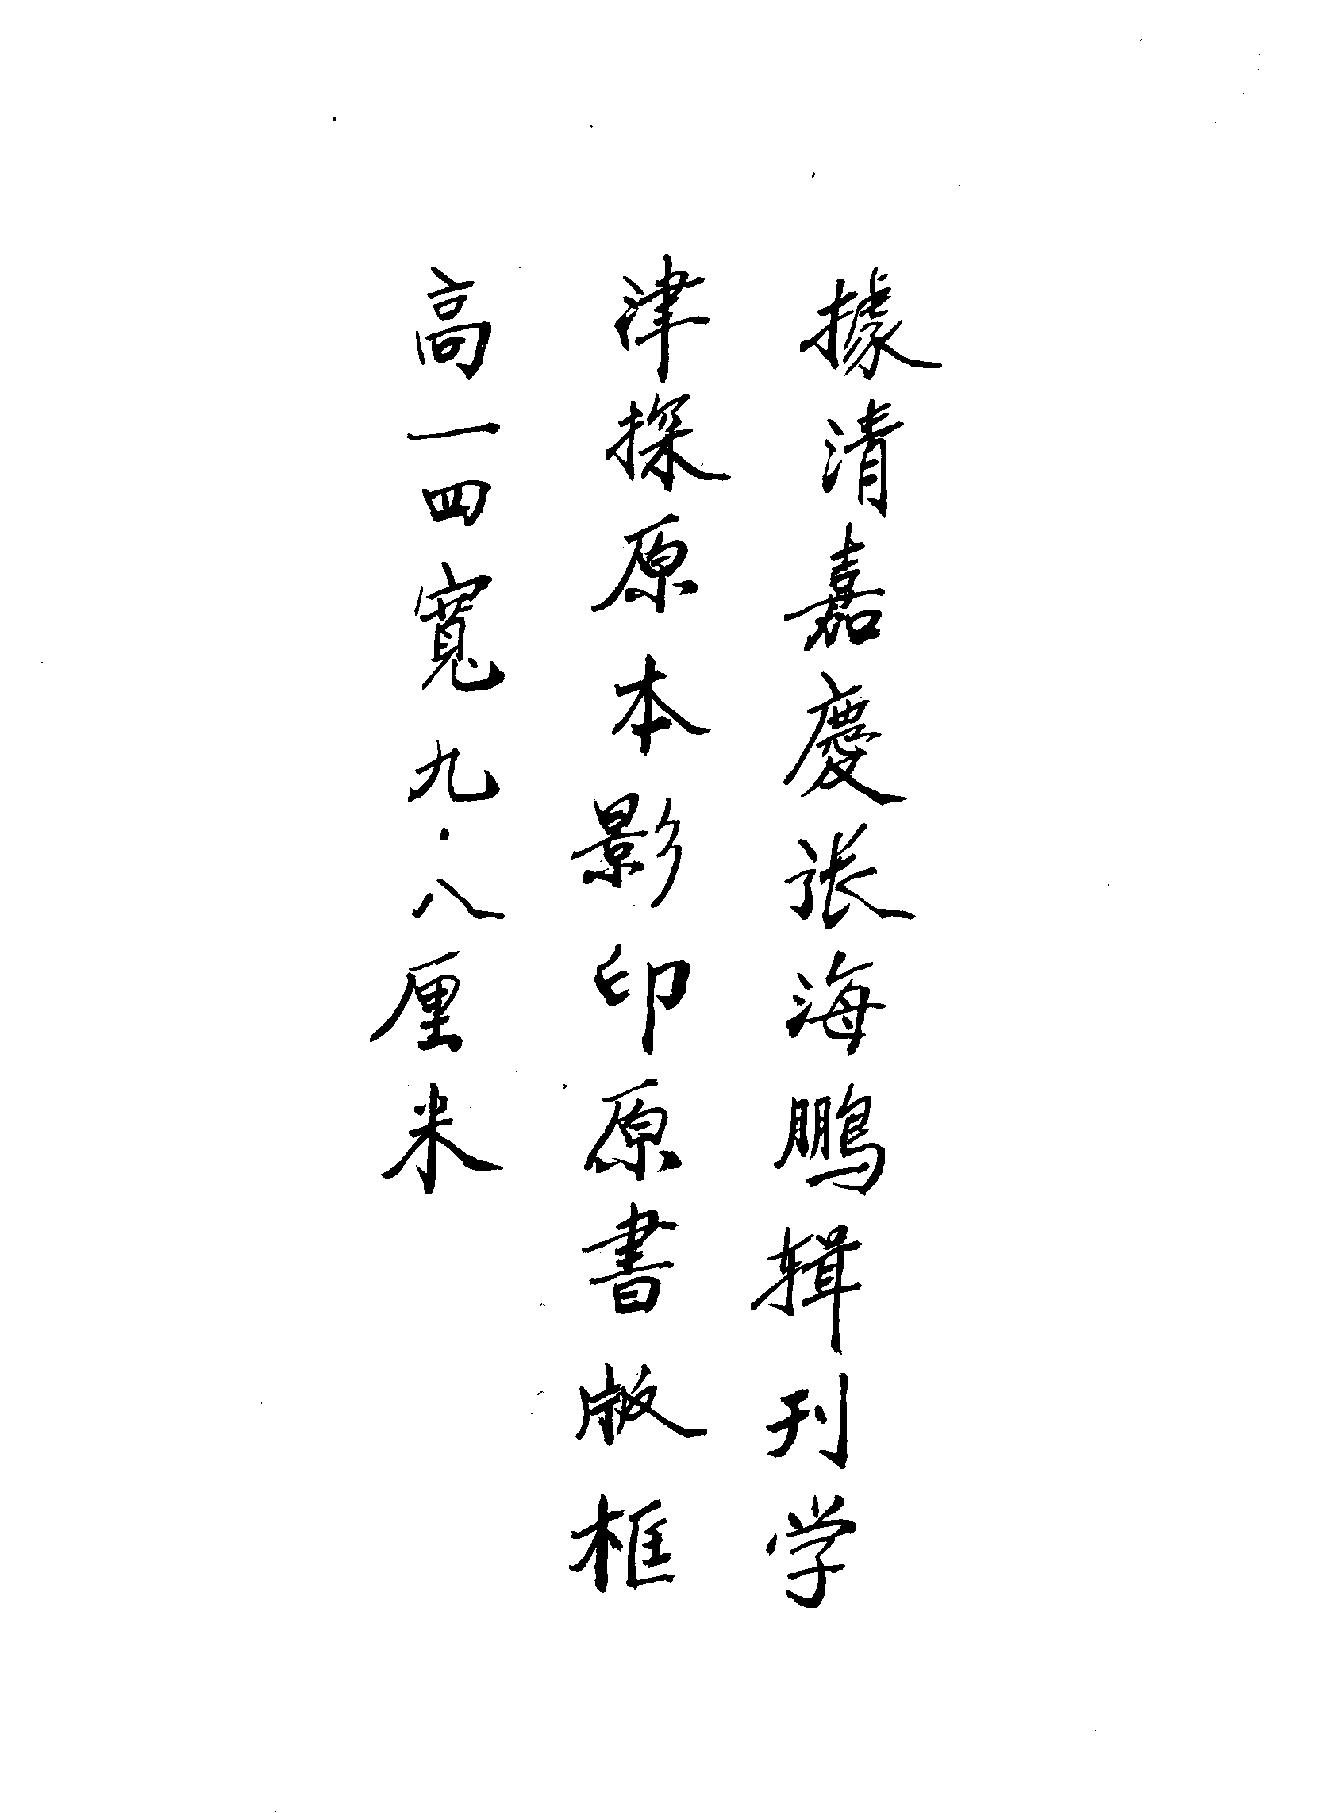 據清嘉慶張海鵬辑刊学
津探原本影印原書版框
高一四寬九·八厘米